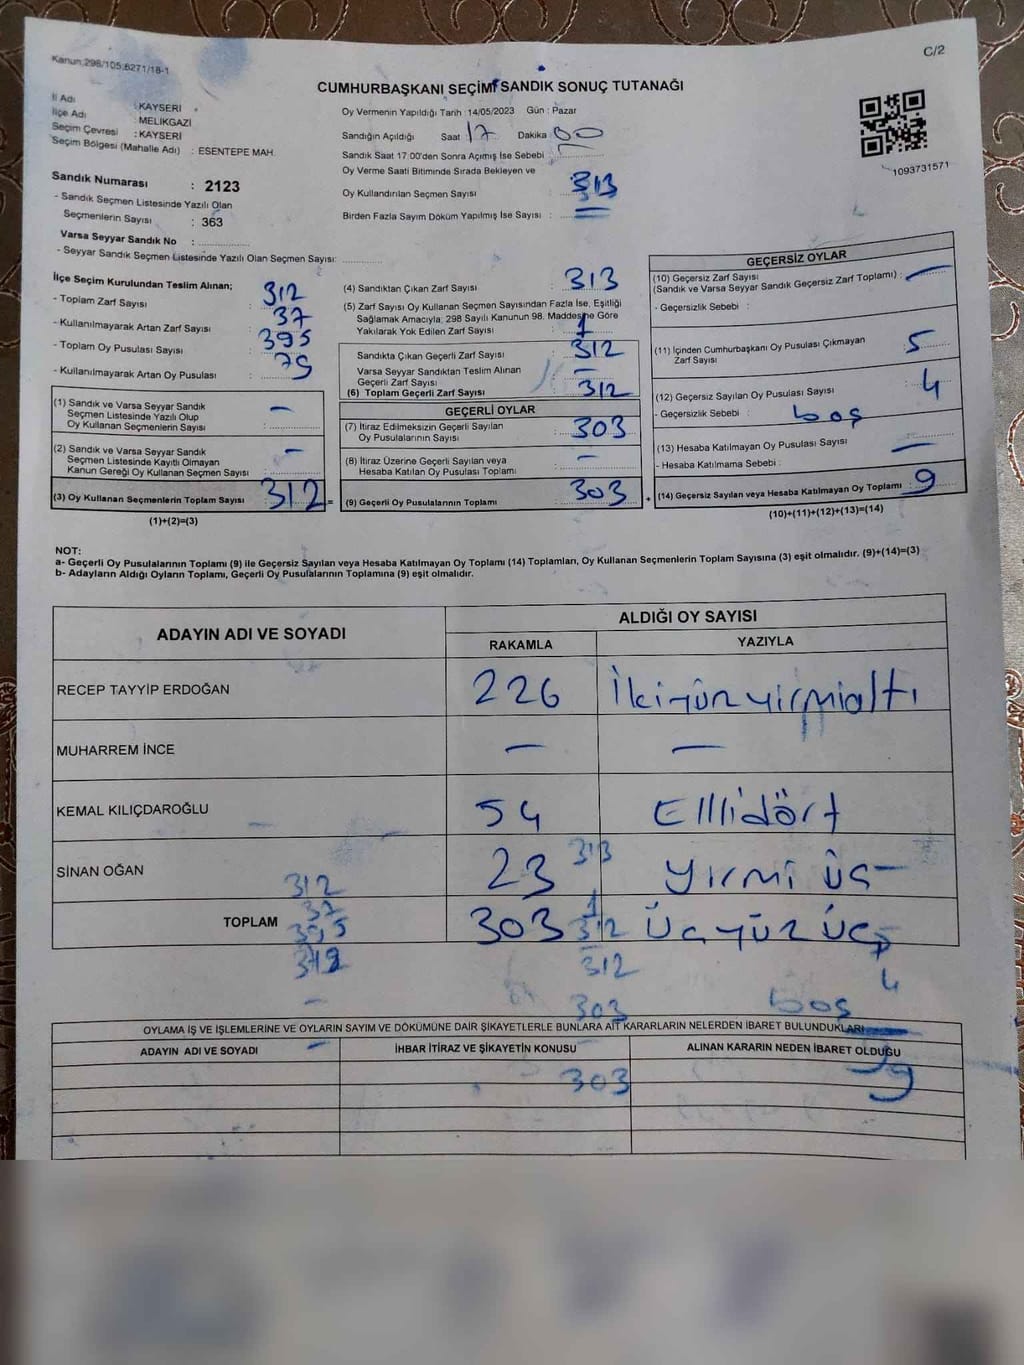 Kanun:298/105;6271/18-1
C/2
CUMHURBAŞKANI SEÇİMİ SANDIK SONUÇ TUTANAĞI
İl Adı : KAYSERİ
İlçe Adı : MELİKGAZİ
Seçim Çevresi : KAYSERİ
Seçim Bölgesi (Mahalle Adı) : ESENTEPE MAH.
Sandık Numarası : 2123
- Sandık Seçmen Listesinde Yazılı Olan
Seçmenlerin Sayısı : 363
Varsa Seyyar Sandık No :
- Seyyar Sandık Seçmen Listesinde Yazılı Olan Seçmen Sayısı:
Oy Vermenin Yapıldığı Tarih : 14/05/2023 Gün : Pazar
Sandığın Açıldığı Saat 17 Dakika 00
Sandık Saat 17:00'den Sonra Açımış İse Sebebi :
Oy Verme Saati Bitiminde Sırada Bekleyen ve
Oy Kullandırılan Seçmen Sayısı : 313
Birden Fazla Sayım Döküm Yapılmış İse Sayısı :
1093731571
İlçe Seçim Kurulundan Teslim Alınan;
- Toplam Zarf Sayısı : 312
- Kullanılmayarak Artan Zarf Sayısı : 37
- Toplam Oy Pusulası Sayısı : 395
- Kullanılmayarak Artan Oy Pusulası : 79
(1) Sandık ve Varsa Seyyar Sandık
Seçmen Listesinde Yazılı Olup
Oy Kullanan Seçmenlerin Sayısı : -
(2) Sandık ve Varsa Seyyar Sandık
Seçmen Listesinde Kayıtlı Olmayan
Kanun Gereği Oy Kullanan Seçmen Sayısı : -
(3) Oy Kullanan Seçmenlerin Toplam Sayısı : 312 =
(1)+(2)=(3)
(4) Sandıktan Çıkan Zarf Sayısı : 313
(5) Zarf Sayısı Oy Kullanan Seçmen Sayısından Fazla İse, Eşitliği
Sağlamak Amacıyla; 298 Sayılı Kanunun 98. Maddesine Göre
Yakılarak Yok Edilen Zarf Sayısı : 1
Sandıkta Çıkan Geçerli Zarf Sayısı : 312
Varsa Seyyar Sandıktan Teslim Alınan
Geçerli Zarf Sayısı : -
(6) Toplam Geçerli Zarf Sayısı : 312
GEÇERLİ OYLAR
(7) İtiraz Edilmeksizin Geçerli Sayılan
Oy Pusulalarının Sayısı : 303
(8) İtiraz Üzerine Geçerli Sayılan veya
Hesaba Katılan Oy Pusulası Toplamı : -
(9) Geçerli Oy Pusulalarının Toplamı : 303 +
GEÇERSİZ OYLAR
(10) Geçersiz Zarf Sayısı
(Sandık ve Varsa Seyyar Sandık Geçersiz Zarf Toplamı) : -
- Geçersizlik Sebebi :
(11) İçinden Cumhurbaşkanı Oy Pusulası Çıkmayan
Zarf Sayısı : 5
(12) Geçersiz Sayılan Oy Pusulası Sayısı : 4
- Geçersizlik Sebebi : boş
(13) Hesaba Katılmayan Oy Pusulası Sayısı : -
- Hesaba Katılmama Sebebi :
(14) Geçersiz Sayılan veya Hesaba Katılmayan Oy Toplamı : 9
(10)+(11)+(12)+(13)=(14)
NOT:
a- Geçerli Oy Pusulalarının Toplamı (9) ile Geçersiz Sayılan veya Hesaba Katılmayan Oy Toplamı (14) Toplamları, Oy Kullanan Seçmenlerin Toplam Sayısına (3) eşit olmalıdır. (9)+(14)=(3)
b- Adayların Aldığı Oyların Toplamı, Geçerli Oy Pusulalarının Toplamına (9) eşit olmalıdır.
ADAYIN ADI VE SOYADI
ALDIĞI OY SAYISI
RAKAMLA YAZIYLA
RECEP TAYYİP ERDOĞAN 226 İkiyüzyirmialtı
MUHARREM İNCE - -
KEMAL KILIÇDAROĞLU 54 Ellidört
SİNAN OĞAN 23 Yirmi üç
TOPLAM 303 Üçyüz üç
313
312
37
395
1
312
312
303
boş
4
OYLAMA İŞ VE İŞLEMLERİNE VE OYLARIN SAYIM VE DÖKÜMÜNE DAİR ŞİKAYETLERLE BUNLARA AİT KARARLARIN NELERDEN İBARET BULUNDUKLARI
ADAYIN ADI VE SOYADI İHBAR İTİRAZ VE ŞİKAYETİN KONUSU ALINAN KARARIN NEDEN İBARET OLDUĞU
303
9